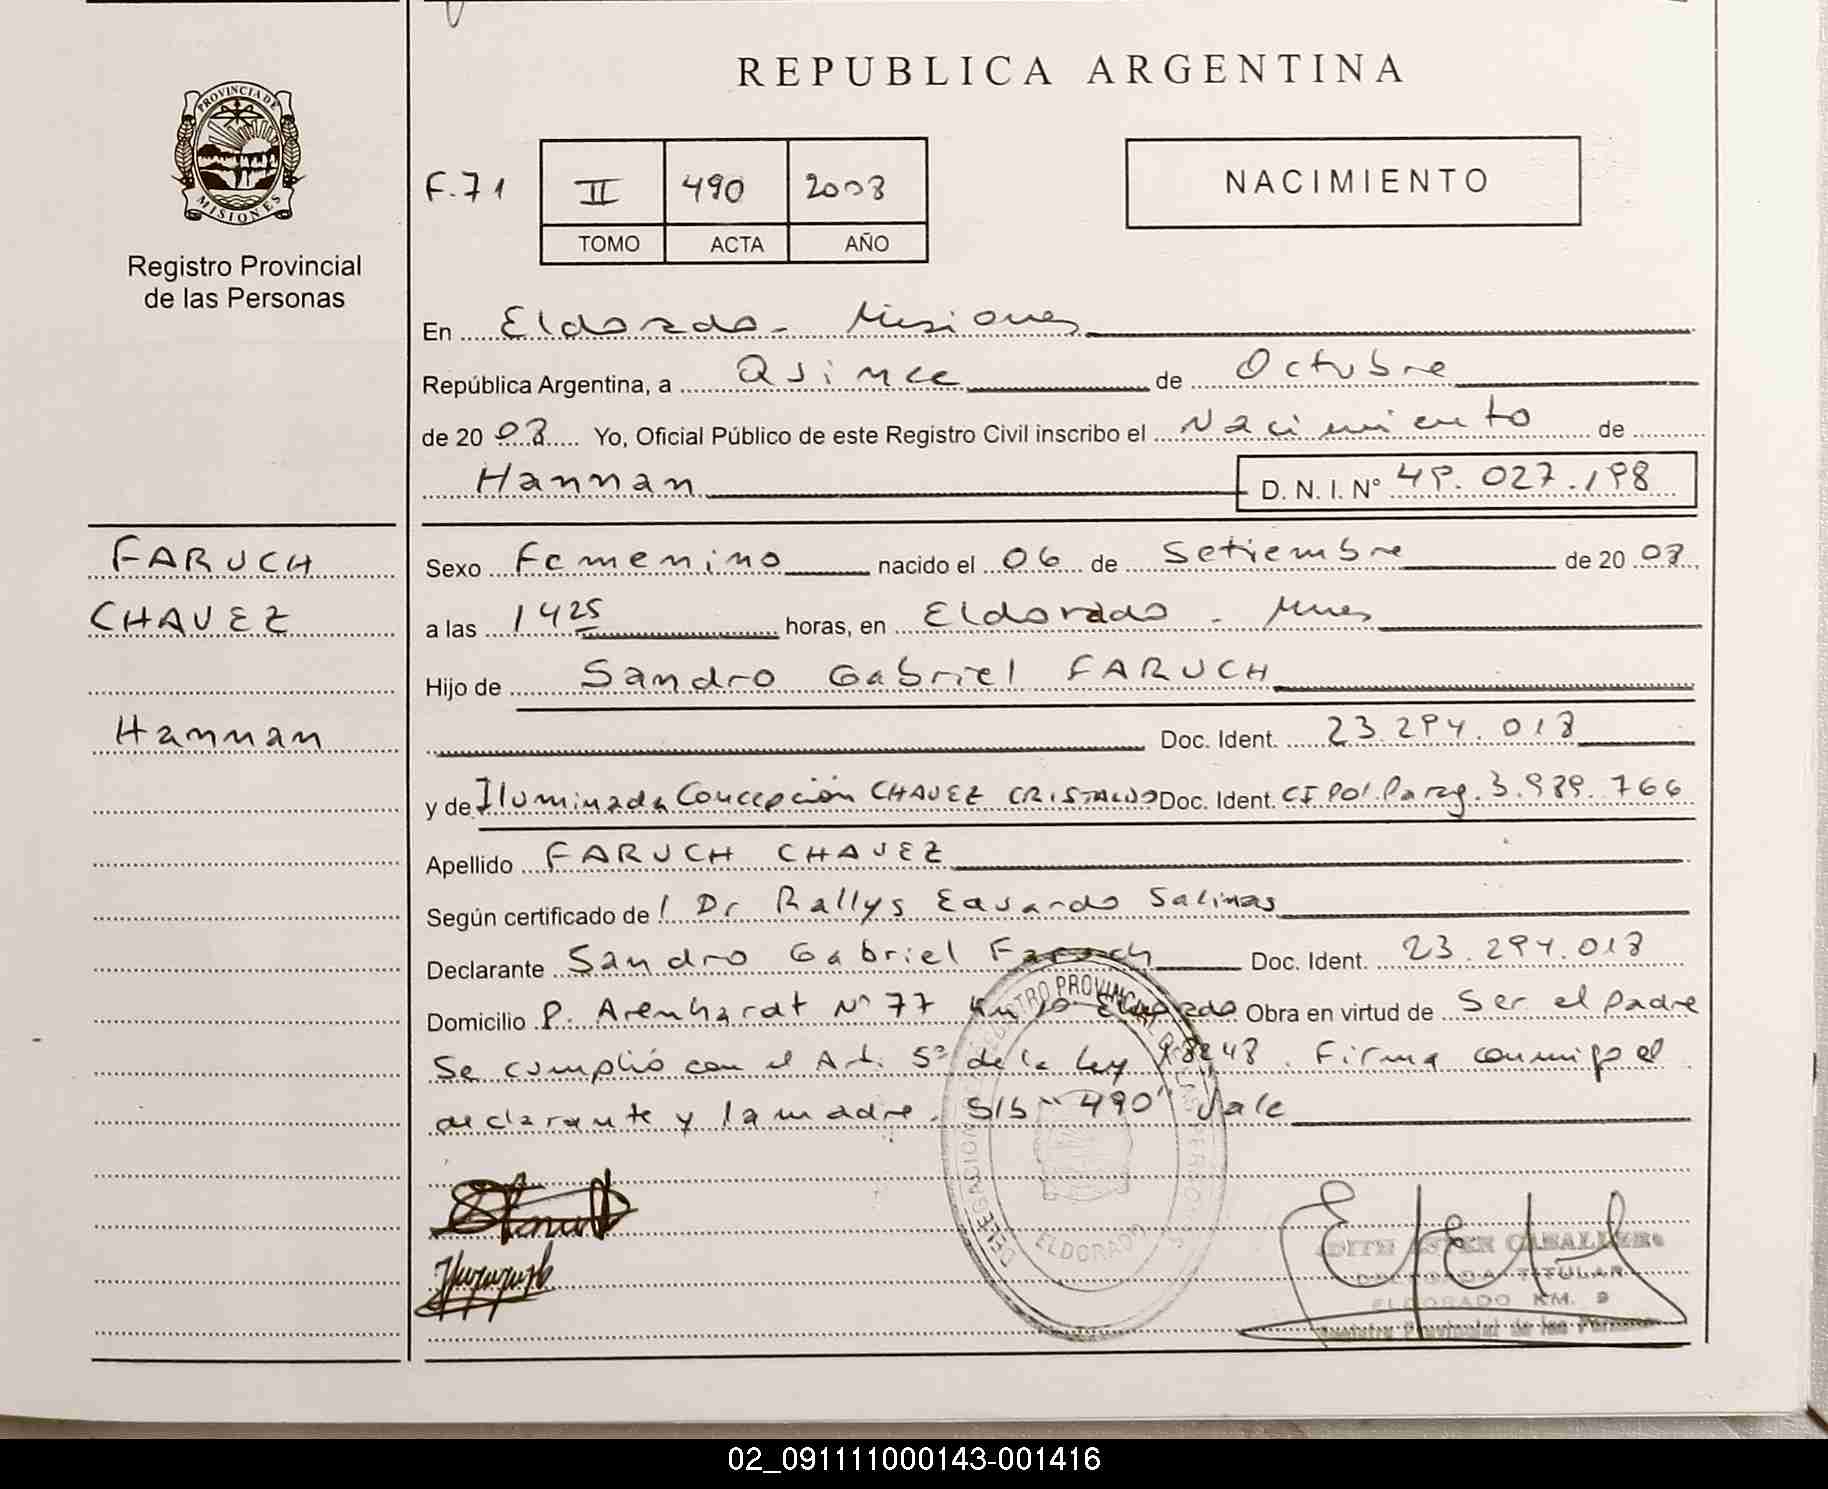 REPUBLICA ARGENTINA
PROVINCIA DE
MISIONES
Registro Provincial
de las Personas
F.71 II 490 2008
TOMO ACTA AÑO
NACIMIENTO
En Eldorado - Misiones
República Argentina, a Quince de Octubre
de 20 08 Yo, Oficial Público de este Registro Civil inscribo el Nacimiento de
Hannan D. N. I. N° 49.027.198
FARUCH
CHAVEZ
Hannan
Sexo Femenino nacido el 06 de Setiembre de 20 08
a las 1425 horas, en Eldorado - Mnes
Hijo de Sandro Gabriel FARUCH
Doc. Ident. 23.294.018
y de Iluminada Concepción CHAVEZ CRISTALDO Doc. Ident. CI Pol. Parag. 3.989.766
Apellido FARUCH CHAVEZ
Según certificado de l Dr Rallys Eduardo Salinas
Declarante Sandro Gabriel Faruch Doc. Ident. 23.294.018
Domicilio P. Arenhardt N° 77 Km 10 Eldorado Obra en virtud de Ser el padre
Se cumplió con el Art. 5° de la Ley 18248. Firma conmigo el
declarante y la madre. S/b "490" Vale
DELEGACION REGISTRO PROVINCIAL DE LAS PERSONAS
ELDORADO
EDITH ESTER CABALLERO
DELEGADA TITULAR
ELDORADO KM. 9
Registro Provincial de las Personas
02_091111000143-001416